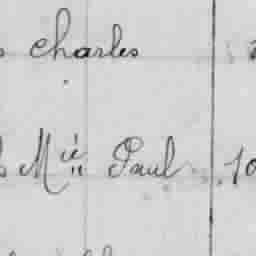 charles
Mié Paul 10